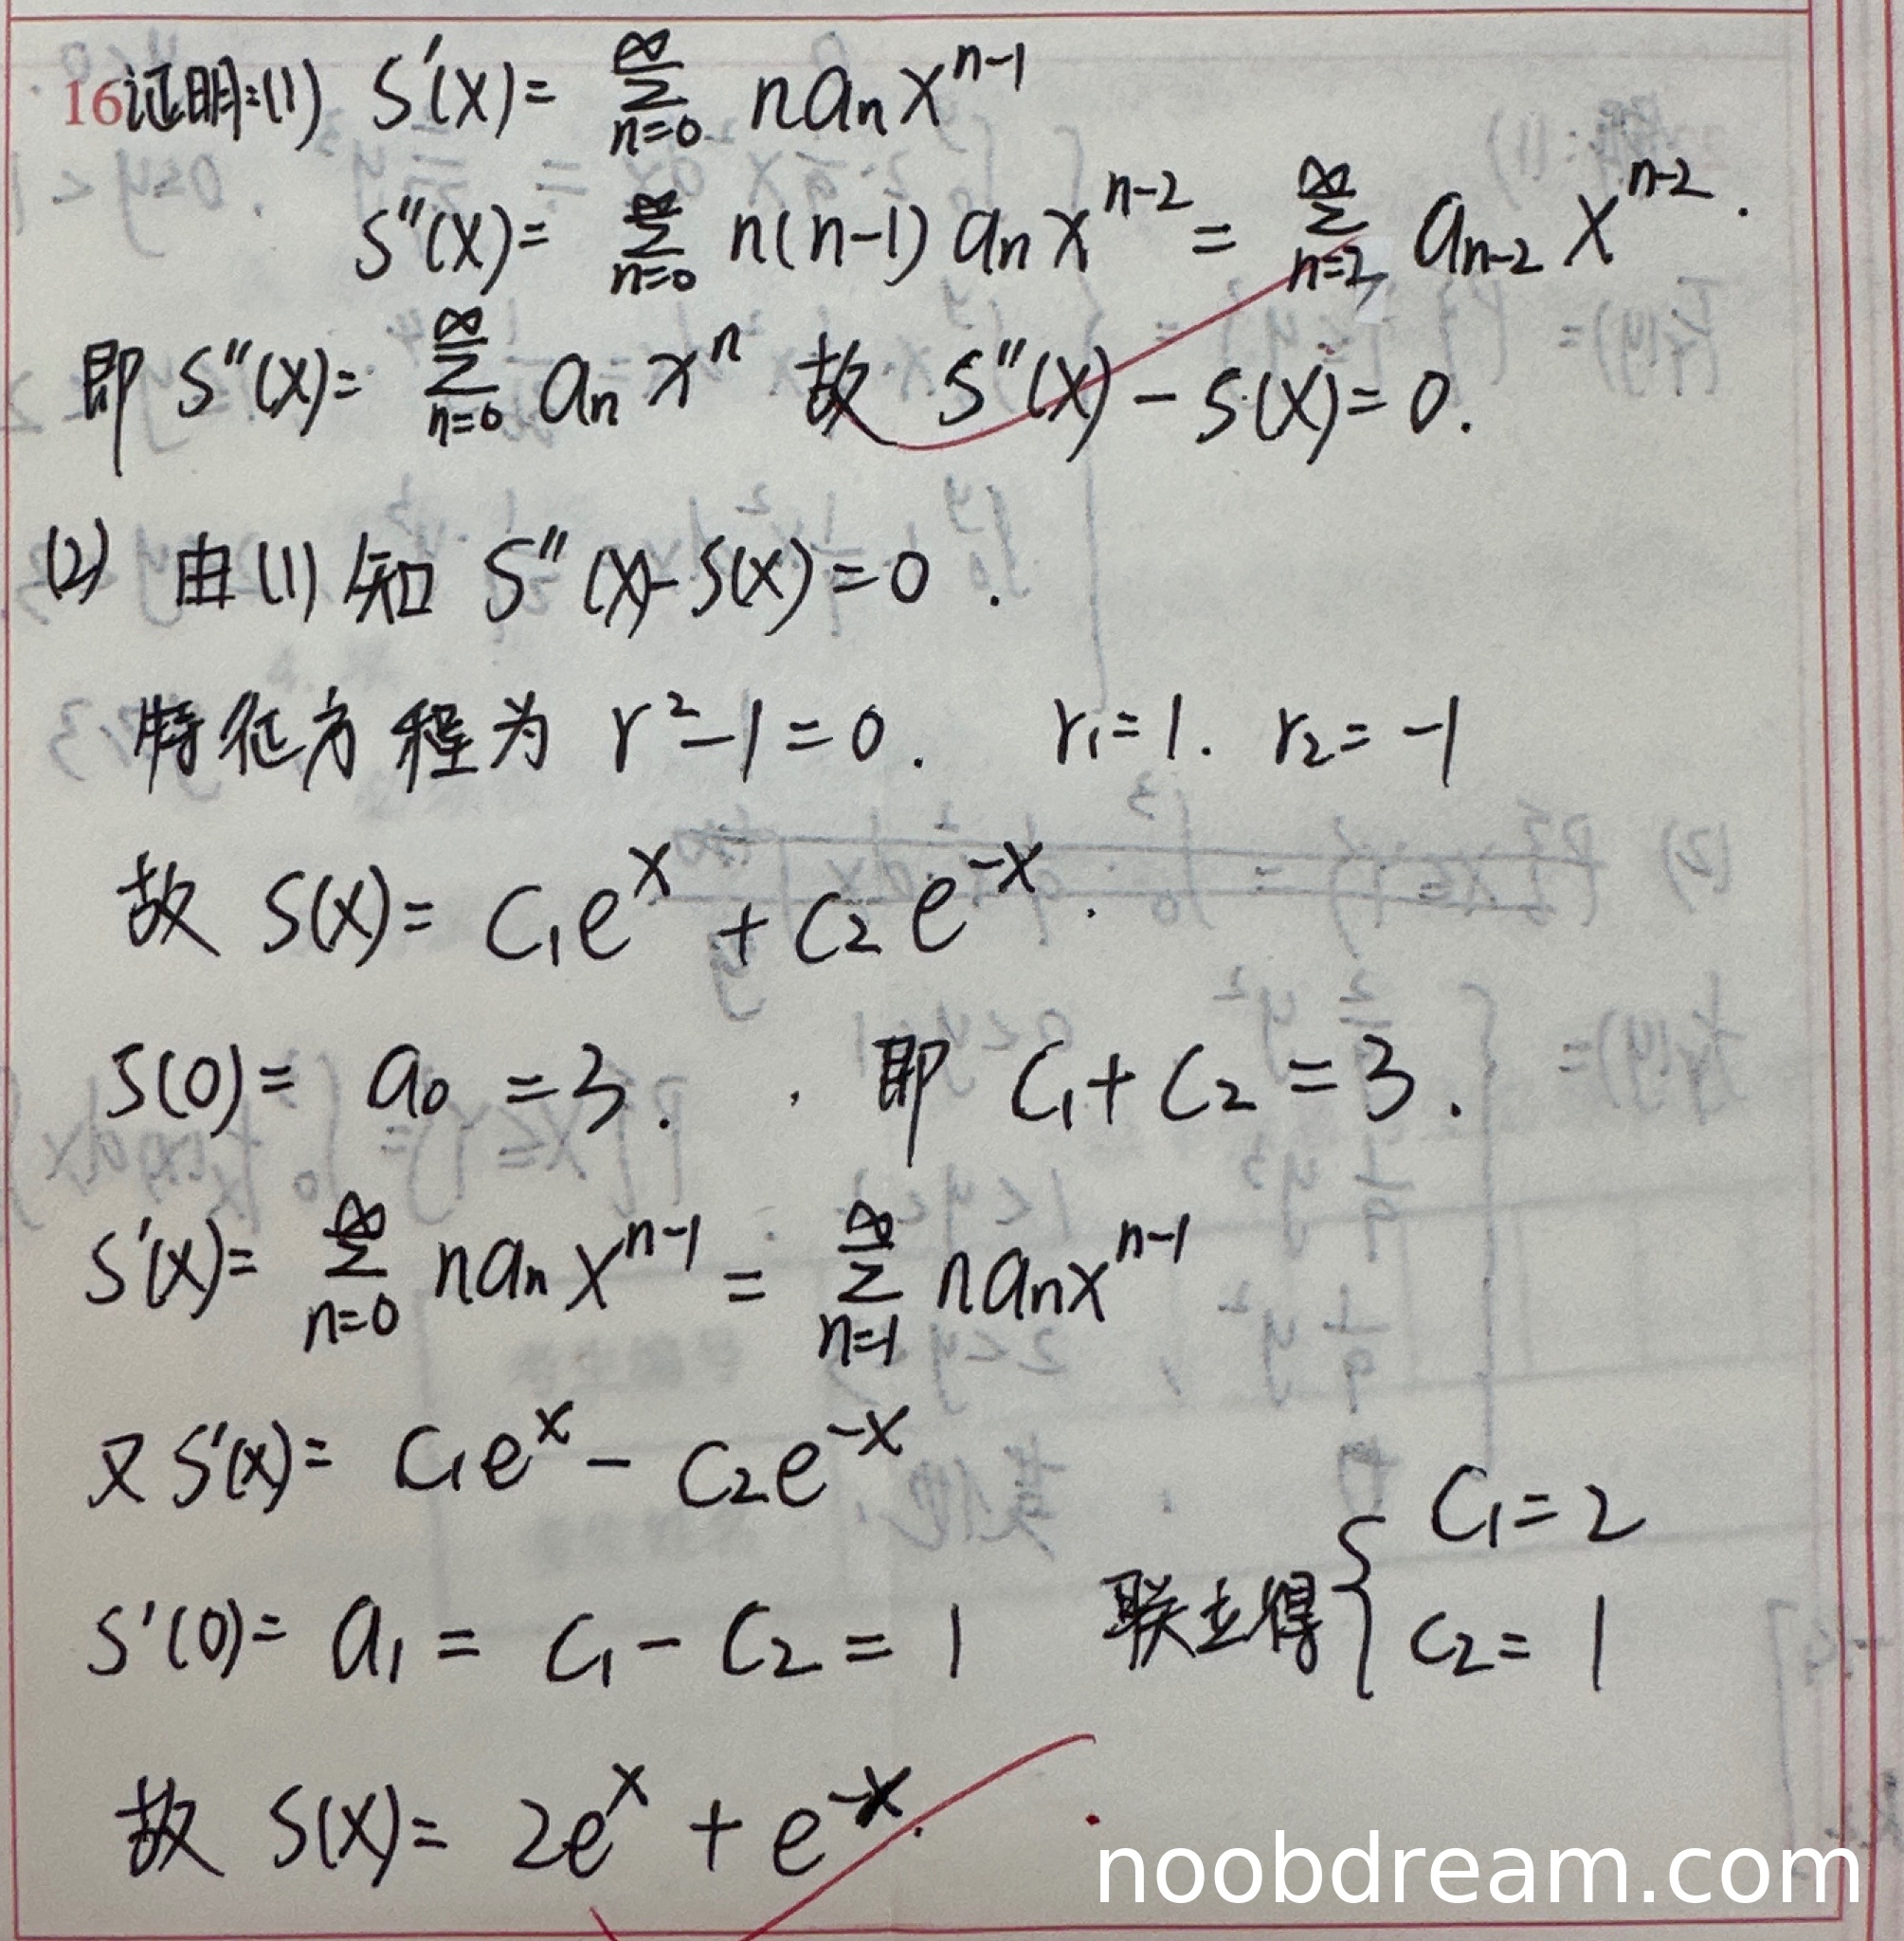 16证明:(1) S'(x)= ∑_{n=0}^{∞} n a_n x^{n-1}
S''(x)= ∑_{n=0}^{∞} n(n-1) a_n x^{n-2} = ∑_{n=2}^{∞} a_{n-2} x^{n-2}.
即 S''(x)= ∑_{n=0}^{∞} a_n x^n 故 S''(x)-S(x)=0.
(2) 由(1)知 S''(x)-S(x)=0.
特征方程为 r²-1=0. r₁=1. r₂=-1
故 S(x)= C₁e^x + C₂e^{-x}.
S(0)= a₀ =3. 即 C₁+C₂=3.
S'(x)= ∑_{n=0}^{∞} n a_n x^{n-1} = ∑_{n=1}^{∞} n a_n x^{n-1}
又 S'(x)= C₁e^x - C₂e^{-x}
S'(0)= a₁ = C₁-C₂ = 1 联立得 { C₁=2
C₂=1
故 S(x)= 2e^x + e^{-x}.
noobdream.com